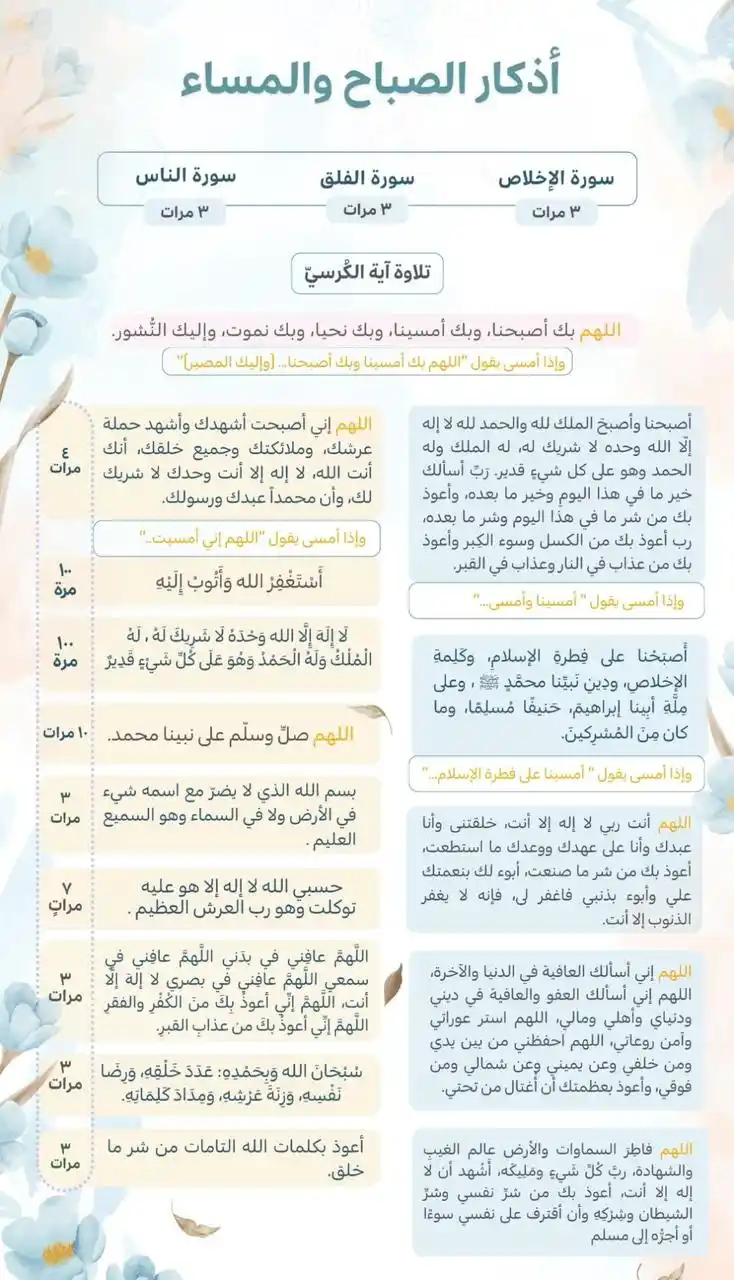 أذكار الصباح والمساء
سورة الإخلاص
٣ مرات
سورة الفلق
٣ مرات
سورة الناس
٣ مرات
تلاوة آية الكُرسيّ
اللهم بك أصبحنا، وبك أمسينا، وبك نحيا، وبك نموت، وإليك النُّشور.
وإذا أمسى يقول "اللهم بك أمسينا وبك أصبحنا... (وإليك المصير)"
أصبحنا وأصبحَ الملك لله والحمد لله لا إله
إلّا الله وحده لا شريك له، له الملك وله
الحمد وهو على كل شيءٍ قدير. ربِّ أسألك
خير ما في هذا اليوم وخير ما بعده، وأعوذ
بك من شر ما في هذا اليوم وشر ما بعده،
رب أعوذ بك من الكسل وسوء الكِبر وأعوذ
بك من عذاب في النار وعذاب في القبر.
وإذا أمسى يقول " أمسينا وأمسى..."
أَصبَحْنا على فِطرةِ الإسلامِ، وكَلِمةِ
الإخلاصِ، ودِينِ نَبيِّنا محمَّدٍ ﷺ ، وعلى
مِلَّةِ أبِينا إبراهيمَ، حَنيفًا مُسلِمًا، وما
كان مِنَ المُشرِكينَ.
وإذا أمسى يقول " أمسينا على فطرة الإسلام..."
اللهم أنت ربي لا إله إلا أنت، خلقتنى وأنا
عبدك وأنا على عهدك ووعدك ما استطعت،
أعوذ بك من شر ما صنعت، أبوء لك بنعمتك
علي وأبوء بذنبي فاغفر لى، فإنه لا يغفر
الذنوب إلا أنت.
اللهم إني أسألك العافية في الدنيا والآخرة،
اللهم إني أسألك العفو والعافية في ديني
ودنياي وأهلي ومالي، اللهم استر عوراتي
وآمن روعاتي، اللهم احفظني من بين يدي
ومن خلفي وعن يميني وعن شمالي ومن
فوقي، وأعوذ بعظمتك أن أغتال من تحتي.
اللهم فاطِرَ السماوات والأرض عالم الغيبِ
والشهادة، ربَّ كُلِّ شَيءٍ ومَلِيكَه، أَشْهد أن لا
إله إلا أنت، أعوذ بك من شرِّ نفسي وشرِّ
الشيطان وشِرْكِهِ وأن أقترف على نفسي سوءًا
أو أجرُّه إلى مسلم
اللهم إني أصبحت أشهدك وأشهد حملة
عرشك، وملائكتك وجميع خلقك، أنك
أنت الله، لا إله إلا أنت وحدك لا شريك
لك، وأن محمداً عبدك ورسولك.
٤
مرات
وإذا أمسى يقول "اللهم إني أمسيت.."
أَسْتَغْفِرُ الله وَأَتُوبُ إِلَيْهِ
١٠٠
مرة
لَا إِلَهَ إِلَّا الله وَحْدَهُ لَا شَرِيكَ لَهُ ، لَهُ
الْمُلْكُ وَلَهُ الْحَمْدُ وَهُوَ عَلَى كُلِّ شَيْءٍ قَدِيرٌ
١٠٠
مرة
اللهم صلِّ وسلّم على نبينا محمد.
١٠ مرات
بسم الله الذي لا يضرّ مع اسمه شيء
في الأرض ولا في السماء وهو السميع
العليم .
٣
مرات
حسبي الله لا إله إلا هو عليه
توكلت وهو رب العرش العظيم .
٧
مراتٍ
اللَّهمَّ عافِني في بدَني اللَّهمَّ عافِني في
سمعي اللَّهمَّ عافِني في بصري لا إلهَ إلَّا
أنت، اللَّهمَّ إنِّي أعوذُ بِكَ منَ الكُفْرِ والفقرِ
اللَّهمَّ إنِّي أعوذُ بكَ من عذابِ القبرِ.
٣
مرات
سُبْحَانَ الله وَبِحَمْدِهِ: عَدَدَ خَلْقِهِ، وَرِضَا
نَفْسِهِ، وَزِنَةَ عَرْشِهِ، وَمِدَادَ كَلِمَاتِهِ.
٣
مرات
أعوذ بكلمات الله التامات من شر ما
خلق.
٣
مرات